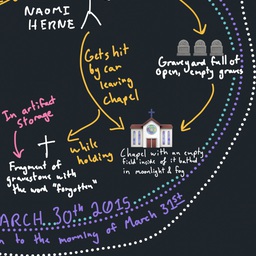 NAOMI
HERNE
Gets hit
by car
leaving
chapel
Graveyard full of
open, empty graves
In artifact
storage
while
holding
Fragment of
gravestone with
the word "forgotten"
Chapel with an empty
field inside of it bathed
in moonlight & fog
MARCH 30th 2015
to the morning of March 31st